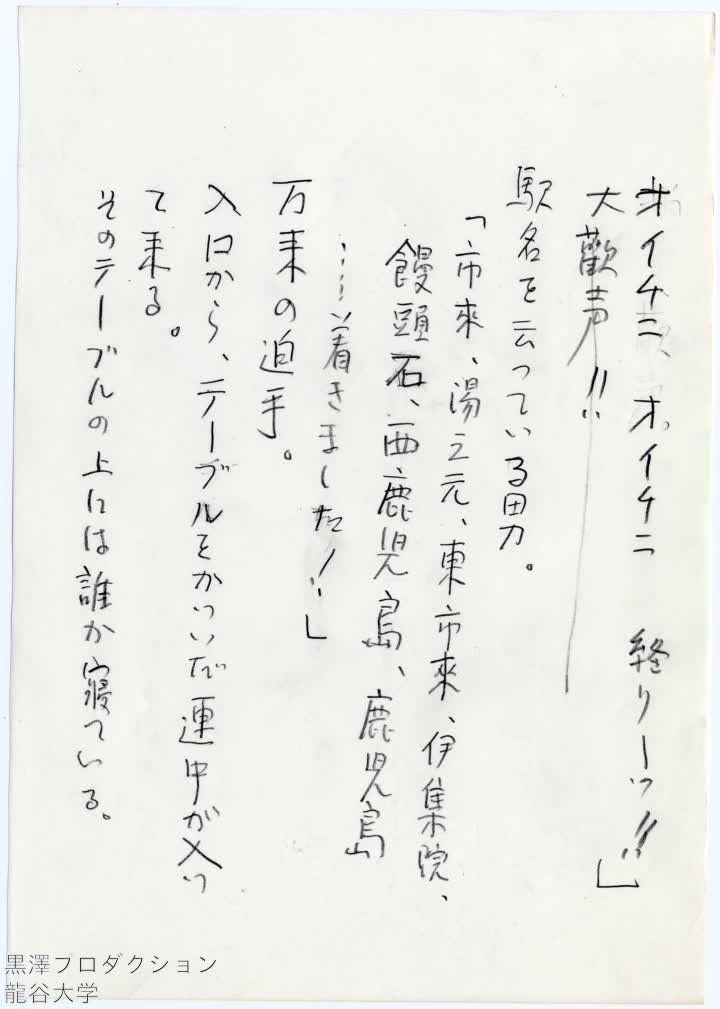 オイチニ、オイチニ　終りーッ!!」
大歡声!!
駅名を云っている男。
「市來、湯之元、東市來、伊集院、
饅頭石、西鹿児島、鹿児島
……着きました!!」
万来の迫手。
入口から、テーブルをかついだ連中が入っ
て来る。
そのテーブルの上には誰か寝ている。
黒澤プロダクション
龍谷大学